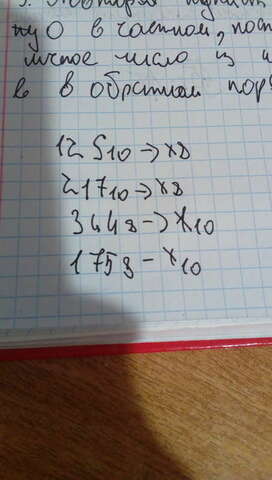 0 в частном, пост
число из
в обратном пор
125₁₀→x₈
217₁₀→x₈
344₈→x₁₀
175₈-x₁₀